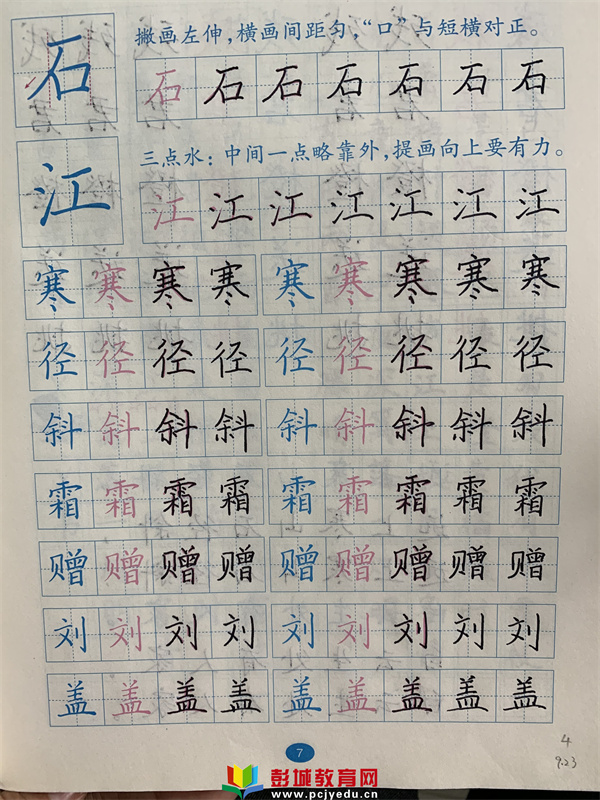 石
撇画左伸，横画间距匀，“口”与短横对正。
石 石 石 石 石 石 石
江
三点水：中间一点略靠外，提画向上要有力。
江 江 江 江 江 江 江
寒 寒 寒 寒 寒 寒 寒 寒 寒
径 径 径 径 径 径 径 径 径
斜 斜 斜 斜 斜 斜 斜 斜 斜
霜 霜 霜 霜 霜 霜 霜 霜 霜
赠 赠 赠 赠 赠 赠 赠 赠 赠
刘 刘 刘 刘 刘 刘 刘 刘 刘
盖 盖 盖 盖 盖 盖 盖 盖 盖
7
4
9.23
彭城教育网
www.pcjyedu.cn